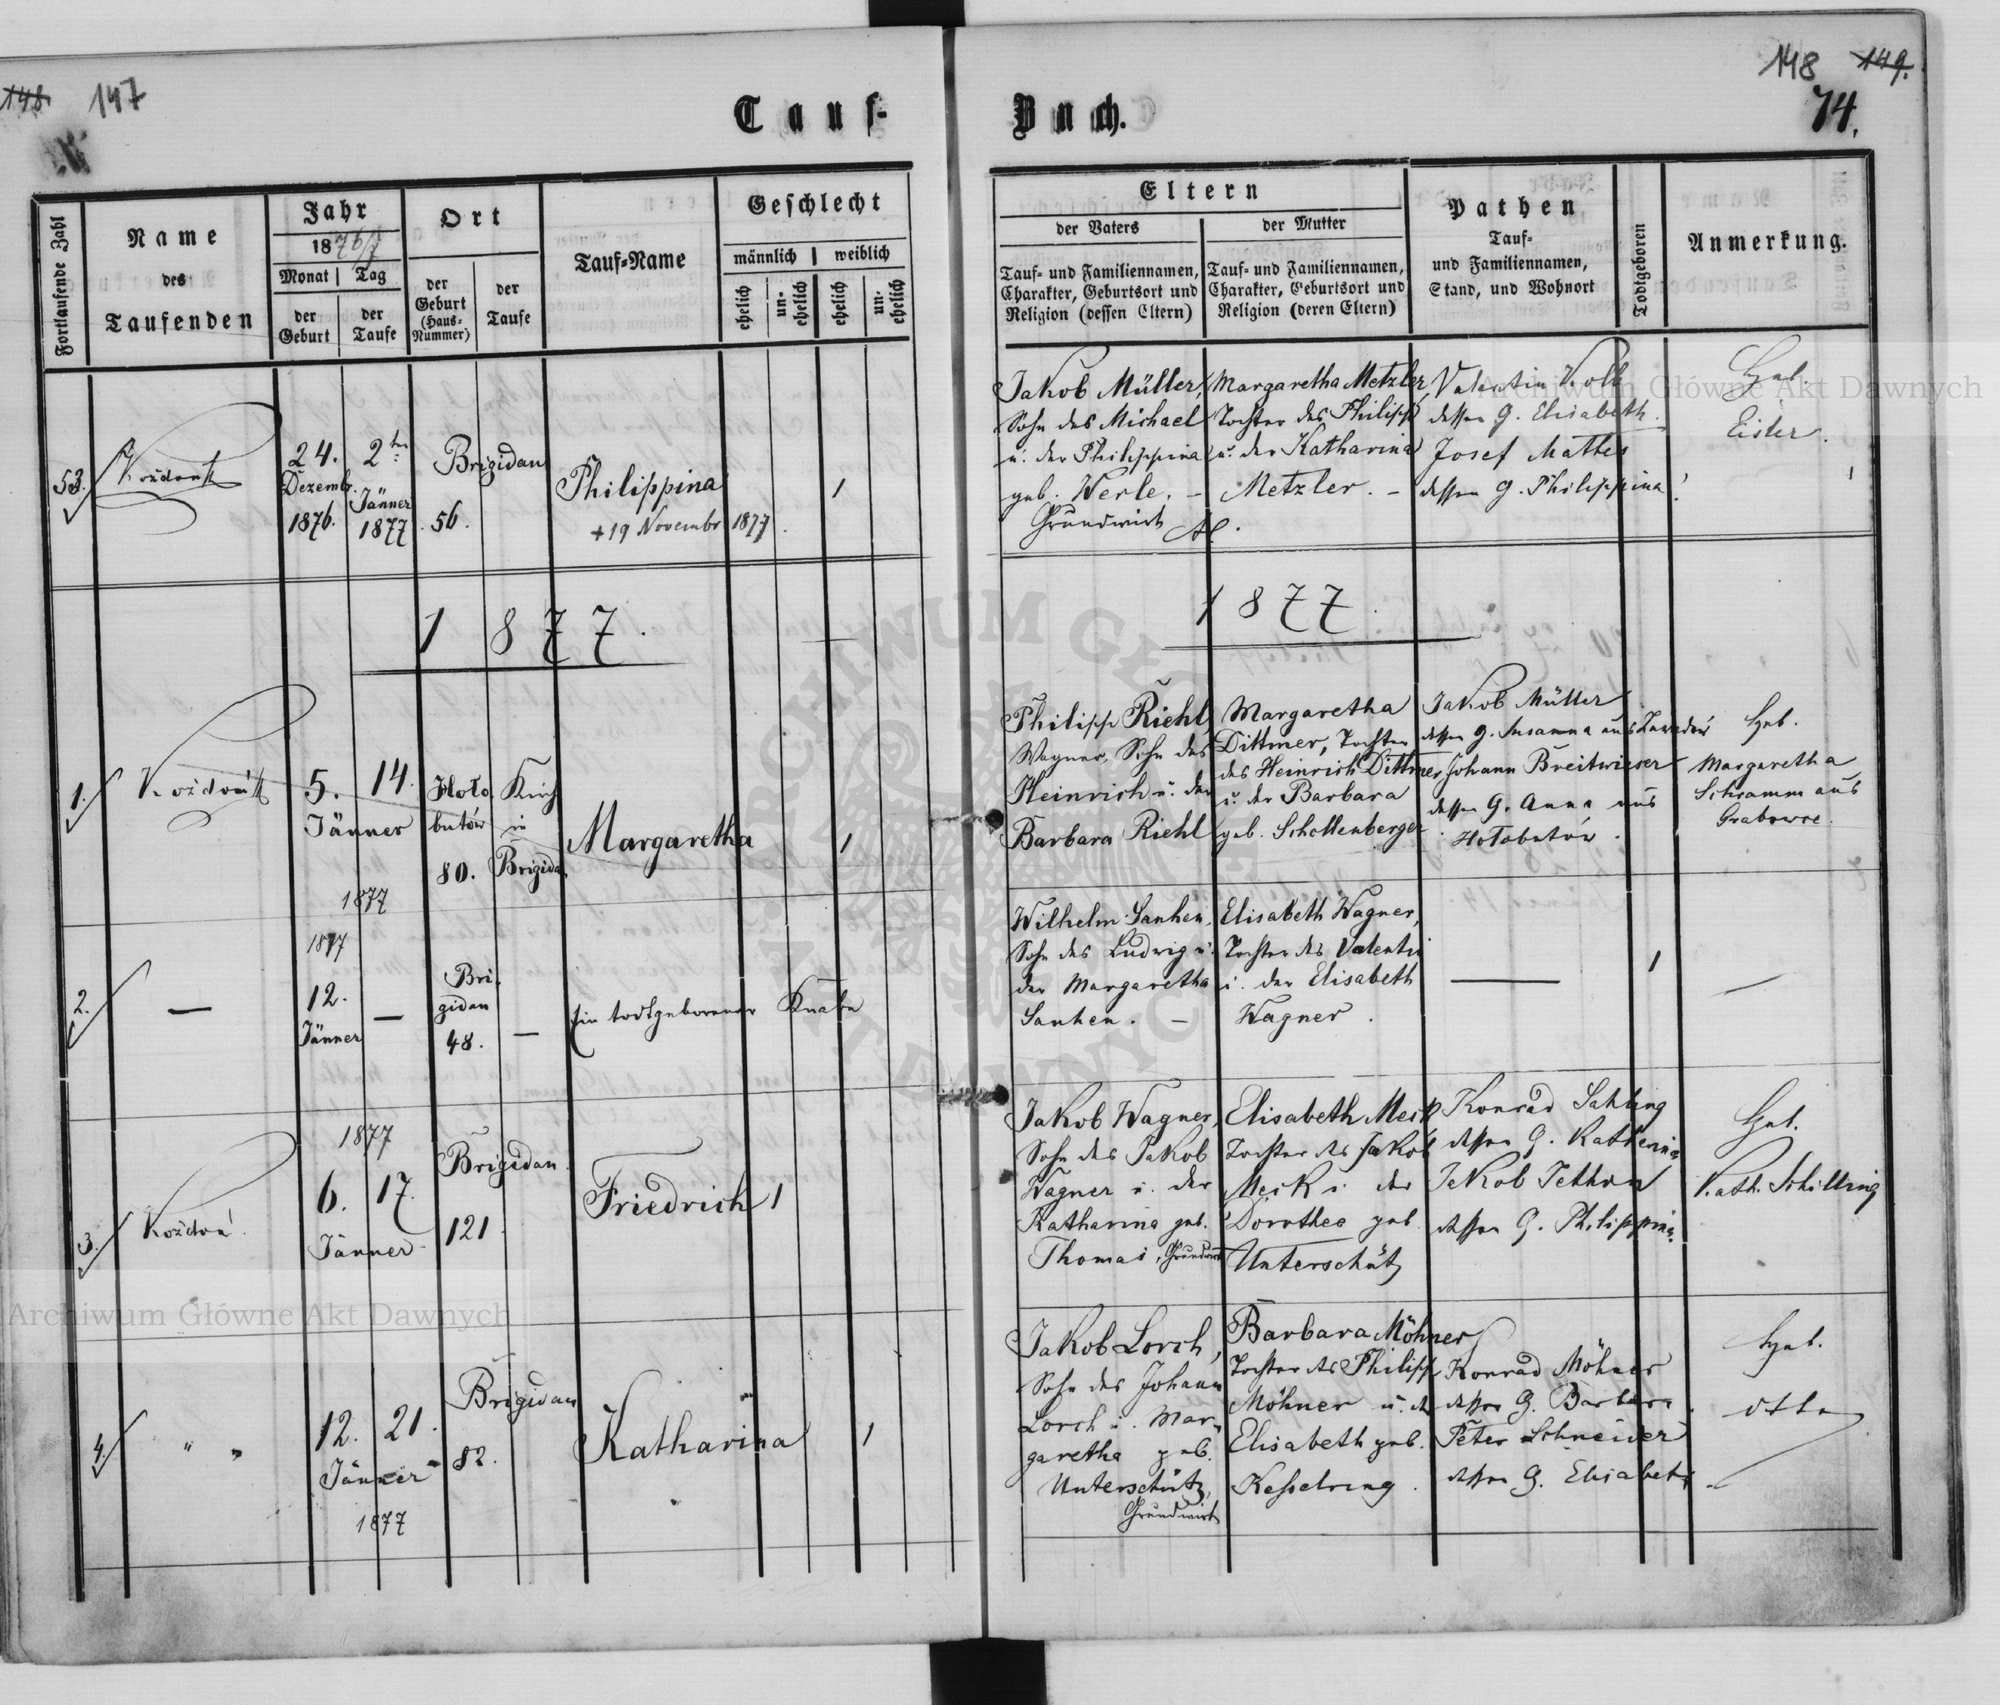 148. 147
148 149.
74.
Tauf-
Buch.
Fortlaufende Zahl
Name
des
Taufenden
Jahr
1876/7
Monat
Tag
der
Geburt
der
Taufe
Ort
der
Geburt
(Haus-
Nummer)
der
Taufe
Tauf-Name
Geschlecht
männlich
weiblich
ehelich
un-
ehelich
ehelich
un-
ehelich
Eltern
der Vaters
der Mutter
Tauf- und Familiennamen,
Charakter, Geburtsort und
Religion (dessen Eltern)
Tauf- und Familiennamen,
Charakter, Geburtsort und
Religion (deren Eltern)
Pathen
Tauf-
und Familiennamen,
Stand, und Wohnort
Todtgeboren
Anmerkung.
53.
24.
Dezemb.
1876.
2ten
Jänner
1877
Brigidau
56.
Philippina
+ 19 Novembr 1877.
1
Jakob Müller,
Sohn des Michael
u. der Philippina
geb. Werle. –
Grundwirt
Margaretha Metzler,
Tochter des Philipp
u. der Katharina
Metzler. –
Valentin Kolb
dessen G. Elisabeth.
Josef Mattes
dessen G. Philippina
Heb.
Eisler.
1877.
1877.
1.
5.
Jänner
14.
1877
Hoło
butów
80.
Kirch
in
Brigidau
Margaretha
1
Philipp Riehl
Wagner, Sohn des
Heinrich u. der
Barbara Riehl
Margaretha
Dittmer, Tochter
des Heinrich Dittmer
u. der Barbara
geb. Schollenberger
Jakob Müller
dessen G. Susanna aus
Johann Breitwieser
dessen G. Anna aus
Hołobutów.
Heb.
Margaretha
Schramm aus
Grabowce.
2.
–
1877
12.
Jänner
–
Bri-
gidau
48.
–
Ein todtgeborener Knabe
Wilhelm
Sohn des Ludwig u.
der Margaretha
Elisabeth Wagner,
Tochter des Valentin
u. der Elisabeth
Wagner.
1
3.
1877
6.
Jänner
17.
Brigidau
121.
Friedrich
1
Jakob Wagner,
Sohn des Jakob
Wagner u. der
Katharina geb.
Thomas, Grundwirt
Elisabeth Meck
Tochter des Jakob
Meck u. der
Dorothee geb.
Unterschütz
Konrad
dessen G. Katharina
Jakob
dessen G. Philippina.
Heb.
Kath. Schilling
4.
" "
12.
Jänner
21.
1877
Brigidau
82.
Katharina
1
Jakob Lorch,
Sohn des Johann
Lorch u. Mar-
garetha geb.
Unterschütz,
Grundwirt
Barbara Möhner
Tochter des Philipp
Möhner u. der
Elisabeth geb.
Kesselring.
Konrad Möhner
dessen G. Barbara.
Peter Schneider
dessen G. Elisabeth
Heb.
Archiwum Główne Akt Dawnych
Archiwum Główne Akt Dawnych
ARCHIWUM GŁÓWNE AKT DAWNYCH